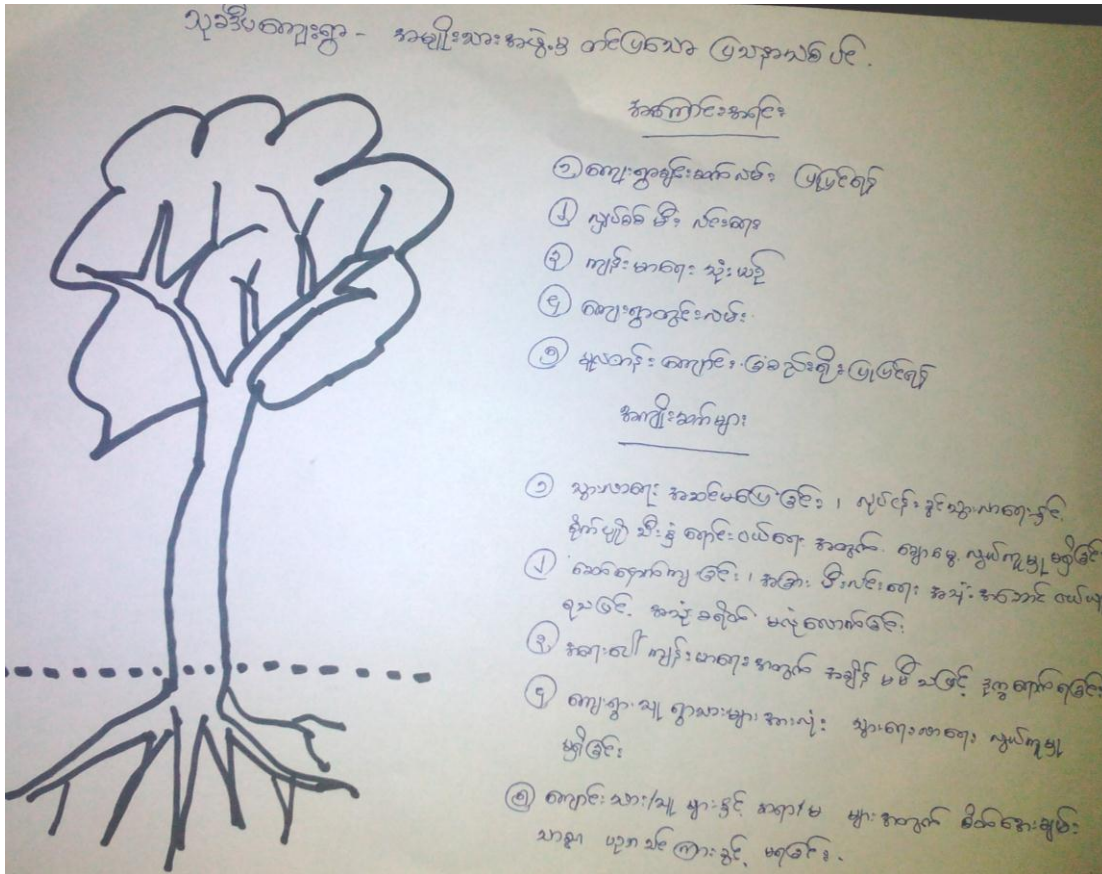 သုခဒီပကျေးရွာ - အမျိုးသားအဖွဲ့မှ တင်ပြသော ပြဿနာသစ်ပင်.
အကြောင်းအရင်း
၁ ကျေးရွာချင်းဆက်လမ်း ပြုပြင်ရန်
၂ လျှပ်စစ် မီး လင်းရေး
၃ ကျန်းမာရေး သုံးယဉ်
၄ ကျေးရွာတွင်းလမ်း
၅ မူလတန်းကျောင်း ခြံစည်းရိုးပြုပြင်ရန်
အကျိုးဆက်များ
၁ သွားလာရေး အဆင်မပြေခြင်း ၊ လုပ်ငန်းခွင်သွားလာရေးနှင့်
စိုက်ပျိုးသီးနှံ ရောင်းဝယ်ရေး အတွက် ချောမွေ့ လွယ်ကူမှု မရှိခြင်း
၂ ခေတ်နောက်ကျခြင်း ၊ အခြား မီးလင်းရေး အသုံးအဆောင် ဝယ်ယူ
ရသဖြင့် အသုံးစရိတ် မလုံလောက်ခြင်း
၃ အရေးပေါ် ကျန်းမာရေးအတွက် အချိန် မမီသဖြင့် ဒုက္ခရောက်ရခြင်း
၄ ကျေးရွာသူ ရွာသားများ အားလုံး သွားရေးလာရေး လွယ်ကူမှု
မရှိခြင်း
၅ ကျောင်းသား/သူ များနှင့် ဆရာ/မ များအတွက် စိတ်အေးချမ်း
သာစွာ ပညာသင်ကြားခွင့် မရခြင်း.